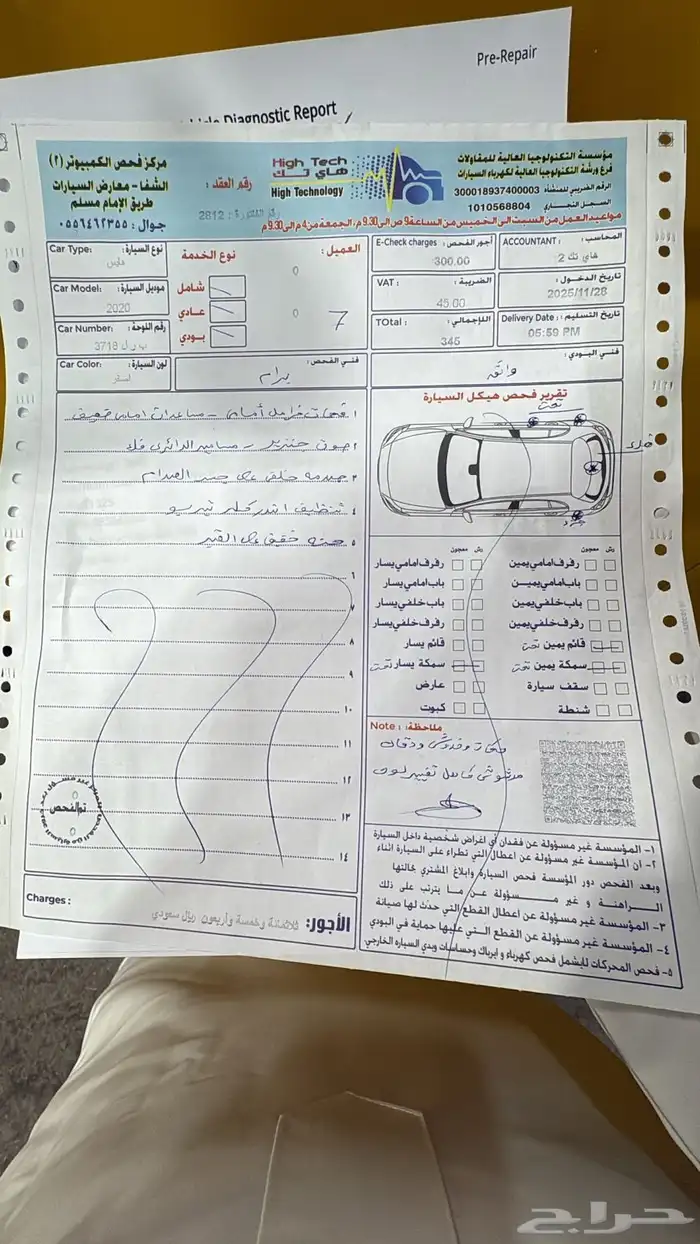 Pre-Repair
Diagnostic Report
مؤسسة التكنولوجيا العالية للمقاولات
فرع ورشة التكنولوجيا العالية لكهرباء السيارات
الرقم الضريبي للمنشأة 300018937400003
السجل التجاري 1010568804
High Tech
هاي تك
High Technology
رقم العقد :
2812
مركز فحص الكمبيوتر (٢)
الشفا - معارض السيارات
طريق الإمام مسلم
جوال : ٠٥٥٦٤٦٢٣٥٥
مواعيد العمل من السبت الى الخميس من الساعة 9 ص الى 9.30 م ، الجمعة من 4 م الى 9.30 م
المحاسب : ACCOUNTANT :
هاي تك 2
أجور الفحص : E-Check charges
300.00
تاريخ الدخول :
2025/11/28
الضريبة : VAT :
45.00
تاريخ التسليم : Delivery Date :
05:59 PM
الإجمالي : TOtal :
345
العميل :
0
0
7
نوع الخدمة
شامل
عادي
بودي
نوع السيارة : Car Type:
موديل السيارة : Car Model:
2020
رقم اللوحة : Car Number:
3718
لون السيارة : Car Color:
فني البودي :
فني الفحص :
تقرير فحص هيكل السيارة
تحت
جدد
١
صوت جنزير - مسامير الدركسون فك ٢
٣
تنظيف انتركولر تيربو ٤
٥
٦
٧
٨
٩
١٠
١١
١٢
١٣
١٤
رش معجون رش معجون
رفرف امامي يمين
رفرف امامي يسار
باب امامي يمين
باب امامي يسار
باب خلفي يمين
باب خلفي يسار
رفرف خلفي يمين
رفرف خلفي يسار
قائم يمين تحت
قائم يسار
سمكة يمين تحت
سمكة يسار تحت
سقف سيارة
عارض
شنطة
كبوت
ملاحظة: Note :
تم الفحص
١- المؤسسة غير مسؤولة عن فقدان أي اغراض شخصية داخل السيارة
٢- ان المؤسسة غير مسؤولة عن اعطال التي تطراء على السيارة اثناء
وبعد الفحص دور المؤسسة فحص السيارة وابلاغ المشتري بحالتها
الراهنة و غير مسؤولة عن ما يترتب على ذلك
٣- المؤسسة غير مسؤولة عن اعطال القطع التي حدث لها صيانة
٤- المؤسسة غير مسؤولة عن القطع التي عليها حماية في البودي
٥- فحص المحركات لايشمل فحص كهرباء و ايرباك وحساسات وبدي السياره الخارجي
Charges :
الأجور: ثلاثمائة وخمسة وأربعون ريال سعودي
حراج